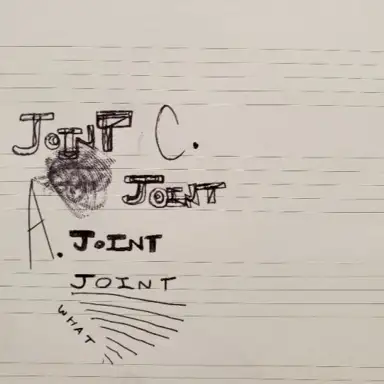 JOINT C.
JOINT
A. JOINT
JOINT
WHAT